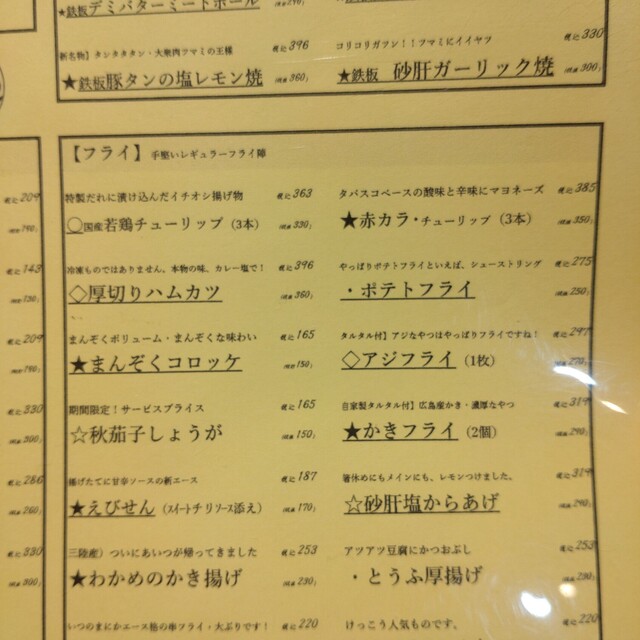 ★鉄板デミバターミートボール
新名物】タンタタタン・大衆肉ツマミの王様 税込396
★鉄板豚タンの塩レモン焼 (税抜360)
コリコリガツン!!ツマミにイイヤツ 税込330
★鉄板 砂肝ガーリック焼 (税抜300)
【フライ】 手堅いレギュラーフライ陣
特製だれに漬け込んだイチオシ揚げ物 税込363
○国産若鶏チューリップ(3本) (税抜330)
冷凍ものではありません、本物の味、カレー塩で! 税込396
◇厚切りハムカツ (税抜360)
まんぞくボリューム・まんぞくな味わい 税込165
★まんぞくコロッケ (税抜150)
期間限定!サービスプライス 税込165
☆秋茄子しょうが (税抜150)
揚げたてに甘辛ソースの新エース 税込187
★えびせん(スイートチリソース添え) (税抜170)
三陸産)ついにあいつが帰ってきました 税込253
★わかめのかき揚げ (税抜230)
いつのまにかエース格の串フライ・大ぶりです! 税込220
タバスコベースの酸味と辛味にマヨネーズ 税込385
★赤カラ・チューリップ(3本) (税抜350)
やっぱりポテトフライといえば、シューストリング 税込275
・ポテトフライ (税抜250)
タルタル付】アジなやつはやっぱりフライですね! 税込297
◇アジフライ(1枚) (税抜270)
自家製タルタル付】広島産かき・濃厚なやつ 税込319
★かきフライ(2個) (税抜290)
箸休めにもメインにも、レモンつけました、 税込319
☆砂肝塩からあげ (税抜290)
アツアツ豆腐にかつおぶし 税込253
・とうふ厚揚げ (税抜230)
けっこう人気ものです、 税込220
税込209
(税抜190)
税込143
(税抜130)
税込209
(税抜190)
税込330
(税抜300)
税込286
(税抜260)
税込330
(税抜300)